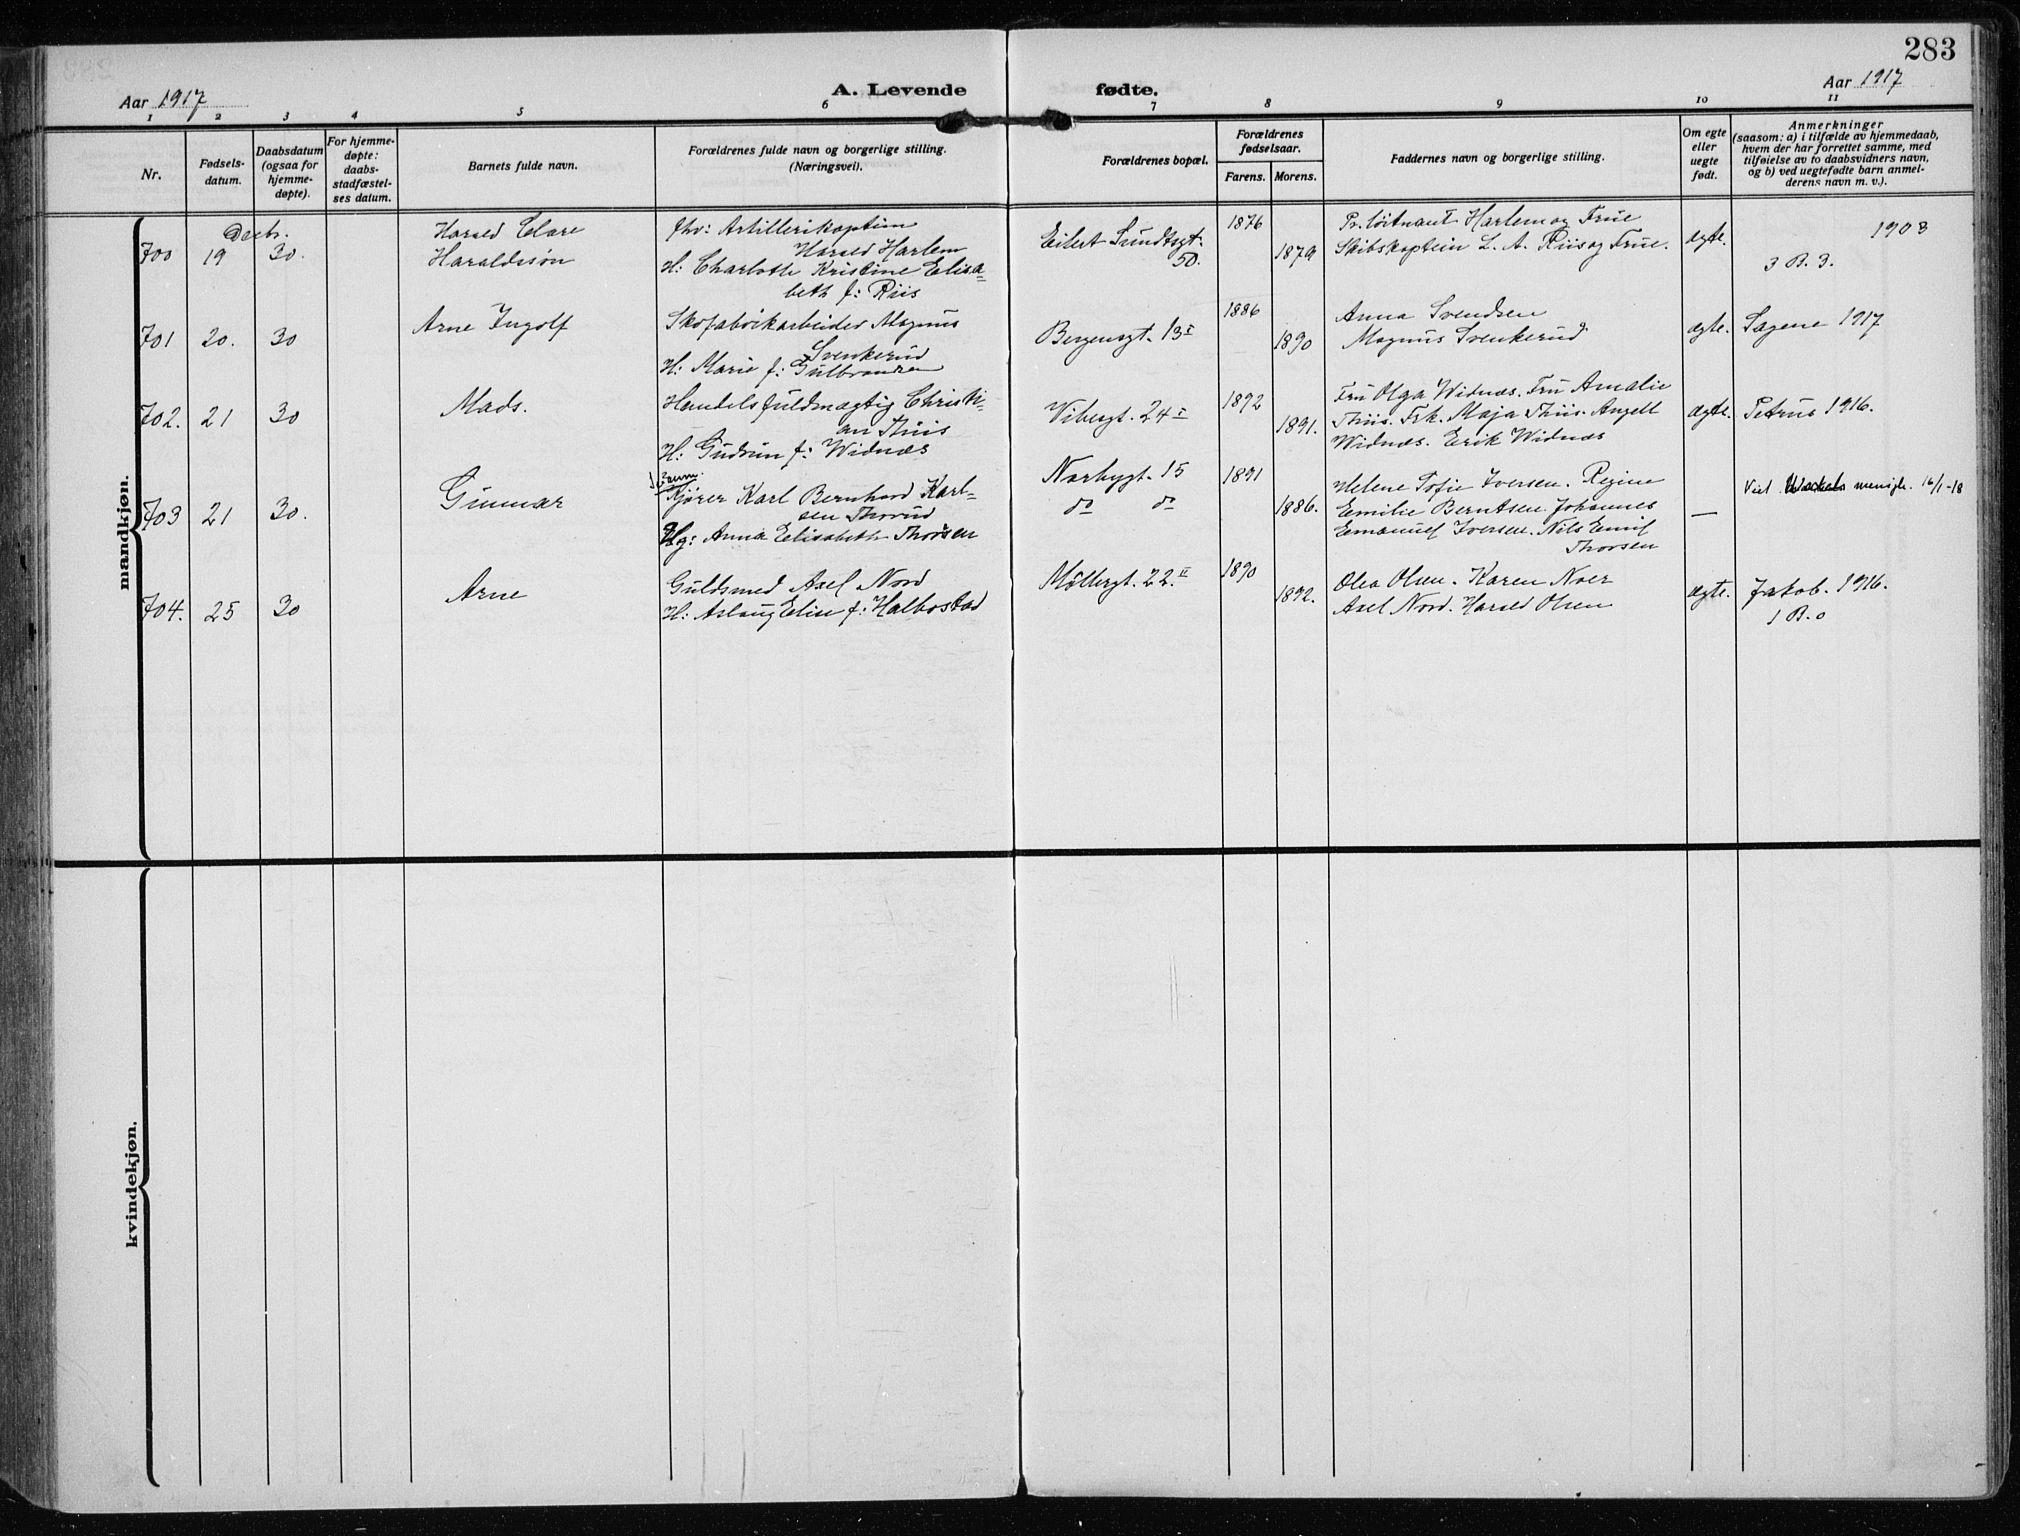 283
Aar 1917
A. Levende fødte.
Aar 1917
1 2 3 4 5 6 7 8 9 10 11
Nr.
Fødsels-
datum.
Daabsdatum
(ogsaa for
hjemme-
døpte).
For hjemme-
døpte:
daabs-
stadfæstel-
ses datum.
Barnets fulde navn.
Forældrenes fulde navn og borgerlige stilling.
(Næringsvei).
Forældrenes bopæl.
Forældrenes
fødselsaar.
Farens. Morens.
Faddernes navn og borgerlige stilling.
Om egte
eller
uegte
født.
Anmerkninger
(saasom: a) i tilfælde av hjemmedaab,
hvem der har forrettet samme, med
tilføielse av to daabsvidners navn,
og b) ved uegtefødte barn anmel-
derens navn m. v.).
mandkjøn.
Decbr.
700 19 30.
Harald Clare
Haraldssøn
fhv: Artillerikaptein
Harald Harlem
H: Charlotte Kristine Elisa-
beth f: Riis
Eilert Sundtsgt.
50.
1876
1879
Pr. løitnant Harlem og Frue
Skibskaptein L. A. Riis og Frue.
ægte.
1903
3 B. 3.
701 20. 30
Arne Ingolf
Skofabrikarbeider Magnus
Svenkerud
H: Marie f: Gulbrandsen
Bergensgt. 13 I
1886
1890
Anna Svendsen
Magnus Svenkerud
ægte.
Sagene 1917
702. 21 30
Mads.
Handelsfuldmægtig Christi-
an Thiis
H: Gudrun f: Widnæs
Vibesgt. 24 I
1892
1891.
Fru Olga Widnæs. Fru Amalie
Thiis. Frk. Maja Thiis. Angell
Widnæs. Erik Widnæs
ægte.
Petrus 1916.
703 21 30.
Gunnar
kjører Karl Bernhard Karl-
sen Thorud
Ug: Anna Elisabeth Thorsen
Norbygt. 15
do do
1891
1886.
Helene Sofie Iversen. Regine
Emilie Berntsen. Johannes
Emanuel Iversen. Nils Emil
Thorsen
—
Viet menigh. 16/1-18
704. 25 30
Arne
Guldsmed Axel Nord
H: Aslaug Elise f: Halbostad
Møllergt. 22. II
1890
1892.
Olea Olsen. Karen Noer
Axel Nord. Harald Olsen
ægte.
Jakob. 1916.
1 B. 0
kvindekjøn.